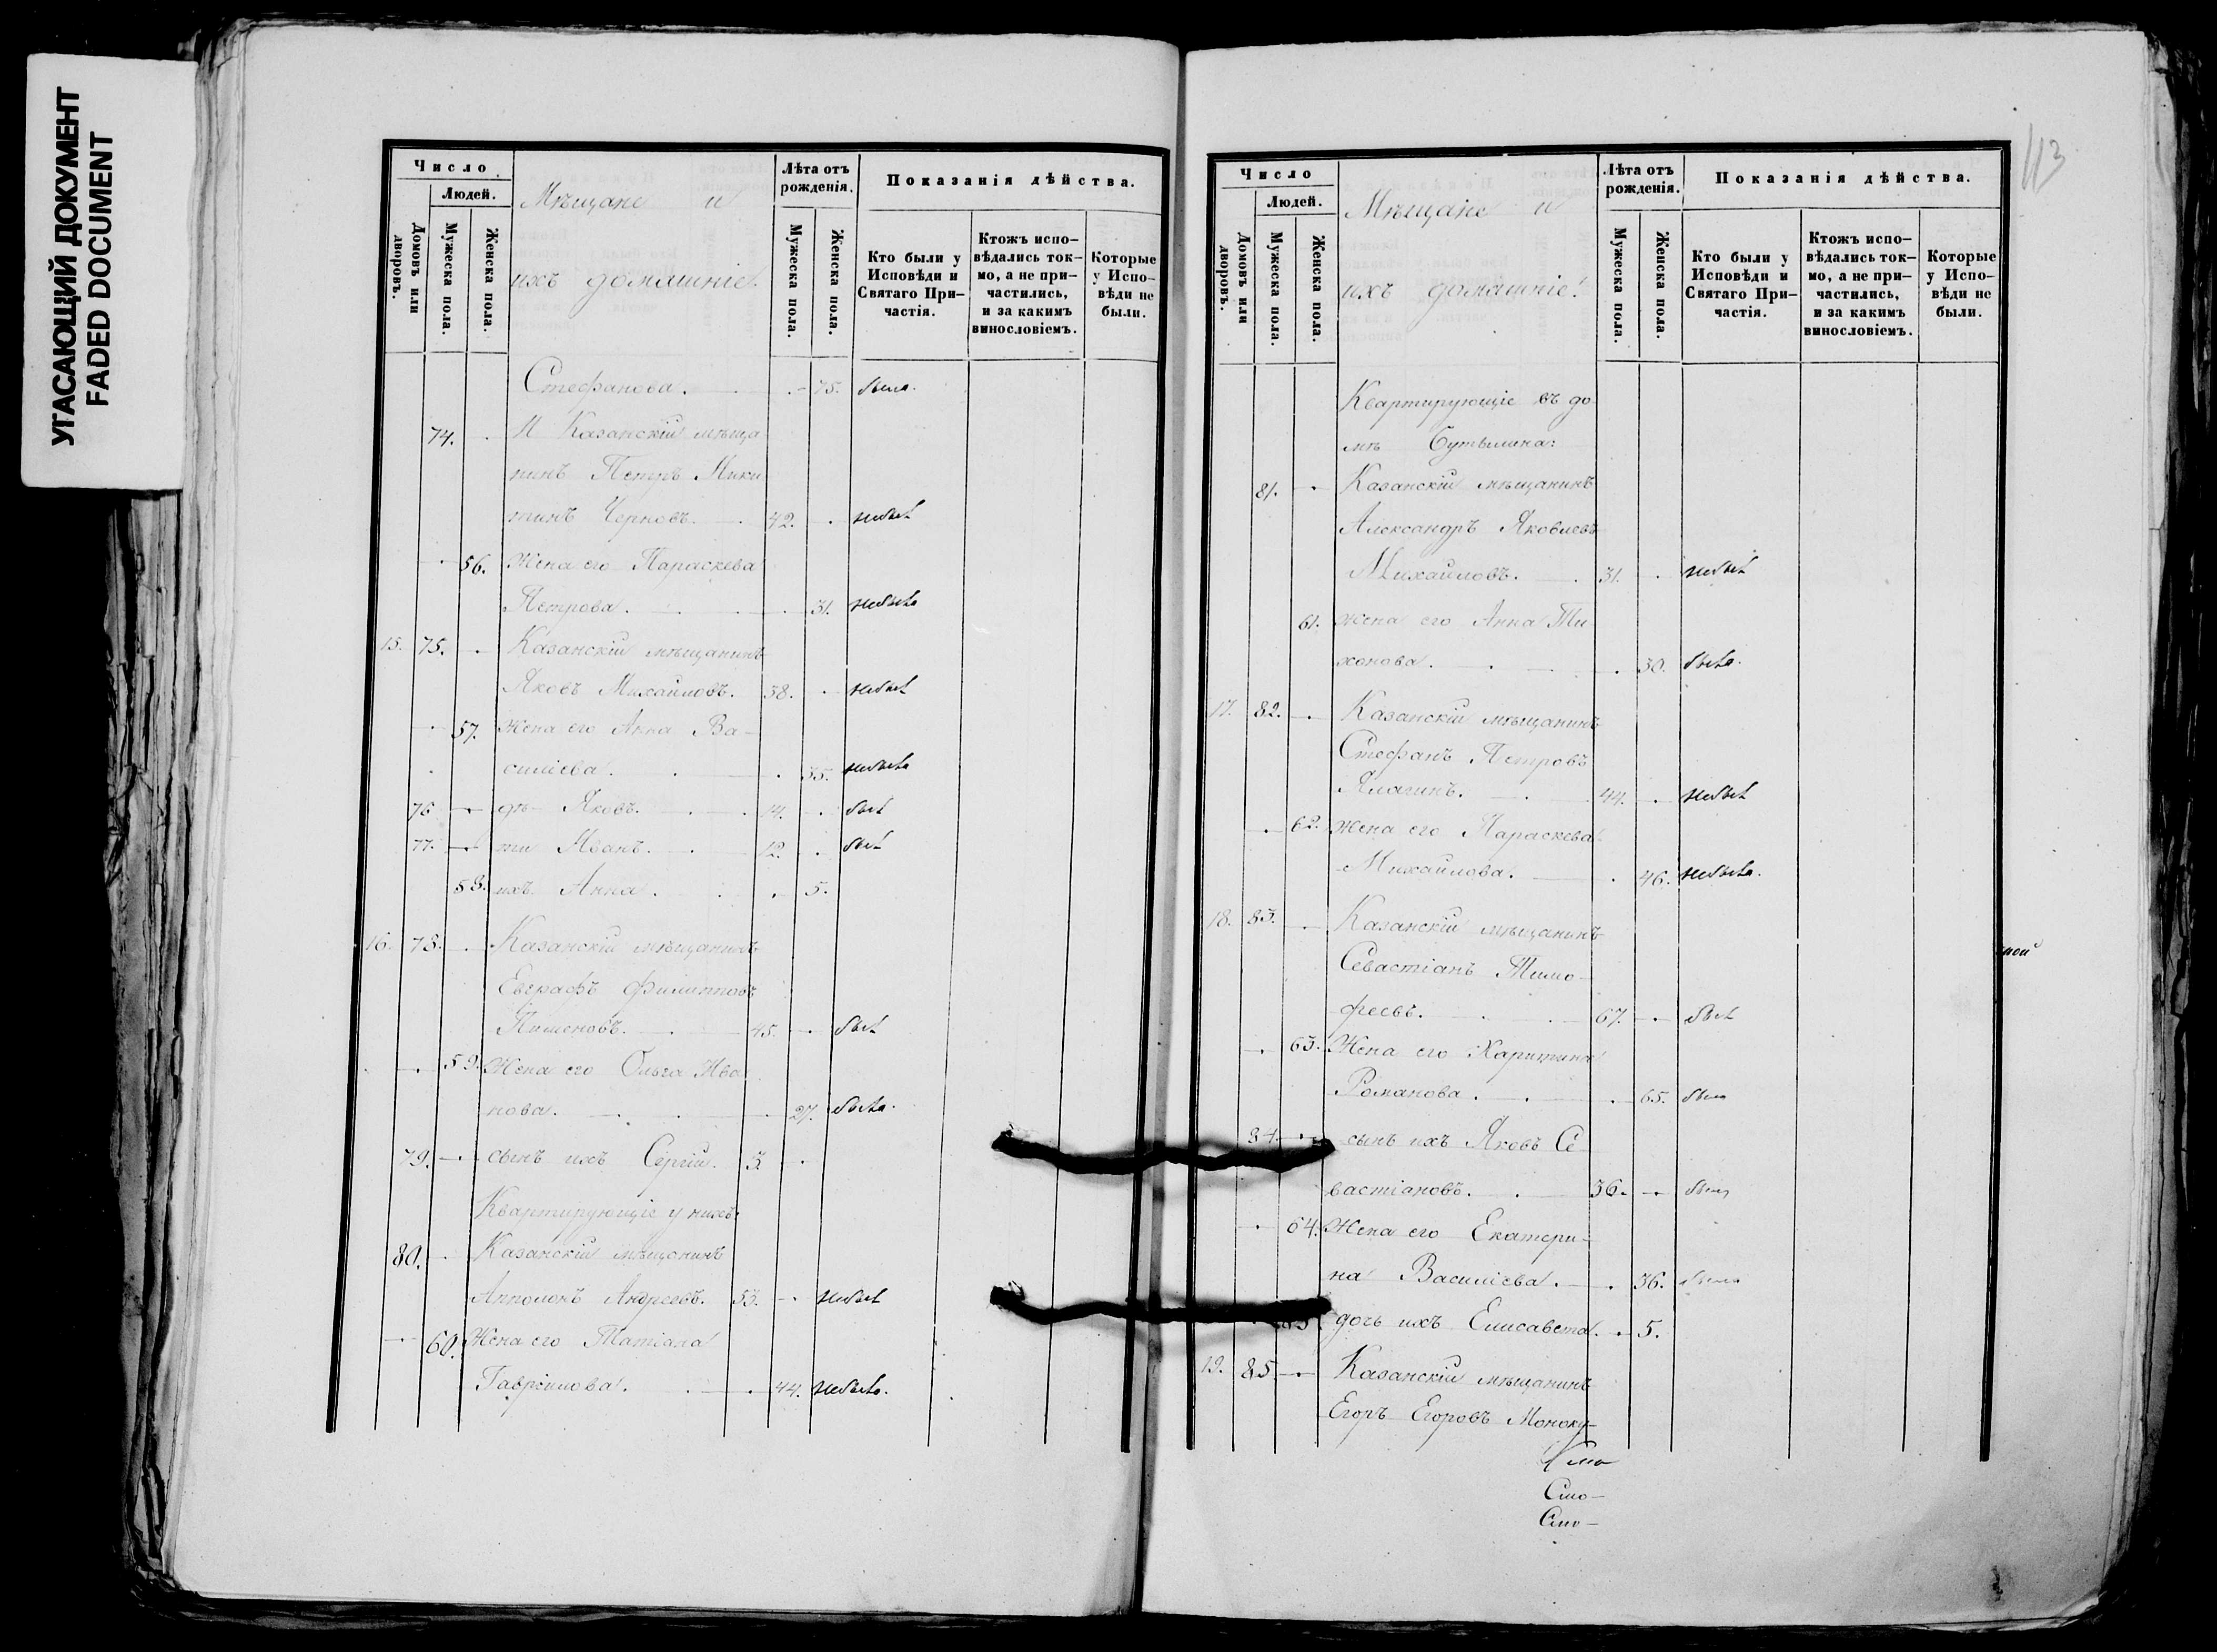 УГАСАЮЩИЙ ДОКУМЕНТ
FADED DOCUMENT
Число
Людей.
Домовъ или дворовъ.
Мужеска пола.
Женска пола.
Мѣщане и
ихъ домашніе.
Лѣта отъ рожденія.
Мужеска пола.
Женска пола.
Показанія дѣйства.
Кто были у Исповѣди и Святаго При–частія.
Ктожъ испо–вѣдались ток–мо, а не при–частились, и за какимъ винословіемъ.
Которые у Испо–вѣди не были.
Стефанова. 75. была.
74. И Казанскій мѣща
нинъ Петръ Ники
тинъ Черновъ. 42. небылъ
56. Жена его Параскева
Петрова. 31. небыла
15. 75. Казанскій мѣщанинъ
Яковъ Михайловъ. 38. небылъ
57. Жена его Анна Ва–
силіева. 35. небыла
76 дѣ– Яковъ. 14. былъ
77. ти Иванъ. 12. былъ
58. ихъ Анна. 5.
16. 78. Казанскій мѣщанинъ
Евграфъ Филипповъ
Пименовъ. 45. былъ
59. Жена его Ольга Ива
нова. 27. была.
79. сынъ ихъ Сергій. 3
Квартирующіе у нихъ:
80. Казанскій мѣщанинъ
Апполонъ Андреевъ. 53. небылъ
60. Жена его Татіана
Гавріилова. 44. небыла.
113
Число
Людей.
Домовъ или дворовъ.
Мужеска пола.
Женска пола.
Мѣщане и
ихъ домашніе.
Лѣта отъ рожденія.
Мужеска пола.
Женска пола.
Показанія дѣйства.
Кто были у Исповѣди и Святаго При–частія.
Ктожъ испо–вѣдались ток–мо, а не при–частились, и за какимъ винословіемъ.
Которые у Испо–вѣди не были.
Квартирующіе въ до
мѣ Бутылина:
81. Казанскій мѣщанинъ
Александръ Яковлевъ
Михайловъ. 31. небылъ
61. жена его Анна Ти
хонова. 30. была.
17. 82. Казанскій мѣщанинъ
Стефанъ Петровъ
44. небылъ
62. жена его Параскева
Михайлова. 46. небыла.
18. 83. Казанскій мѣщанинъ
Севастіанъ Тимо–
феевъ. 67. былъ
63. Жена его Харитина
Романова. 65. была
84 сынъ ихъ Яковъ Се
вастіановъ. 36. былъ
64. Жена его Екатери–
на Василіева. 36. была
дочь ихъ Елисавета. 5.
19. 85 Казанскій мѣщанинъ
Егоръ Егоровъ Моноку–
Сто–
Сто–
ной